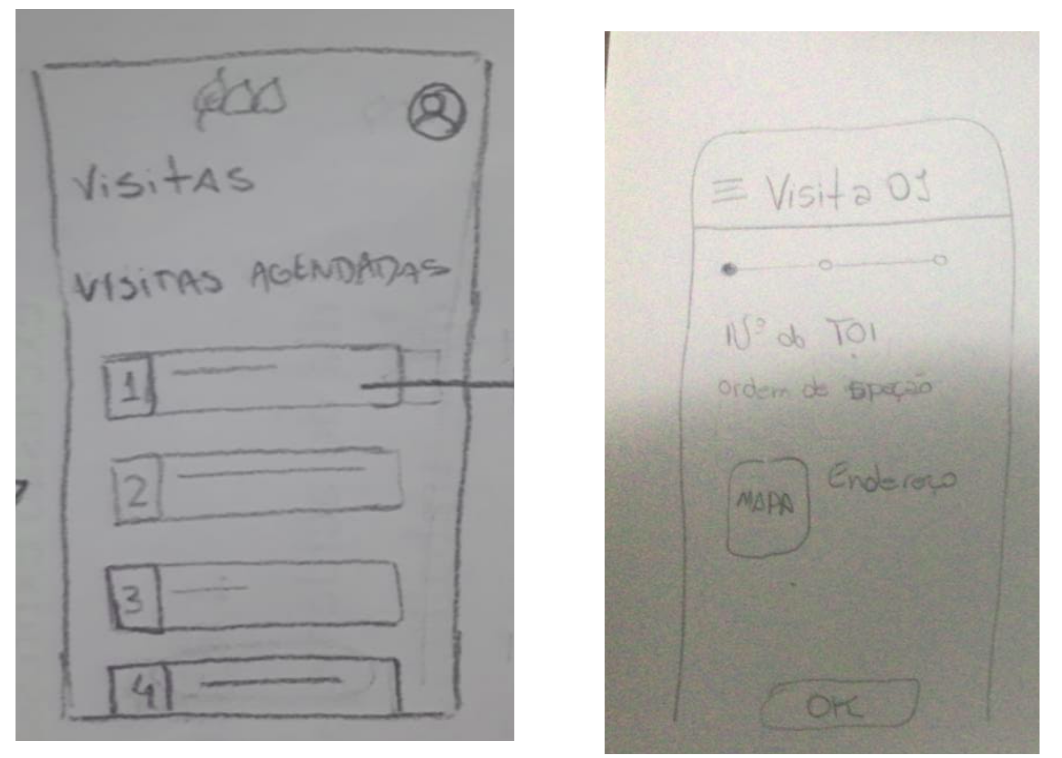 VisitAS
VISITAS AGENDADAS
1
2
3
4
Visita 01
Nº do TOI
ordem de
Endereço
MAPA
OK